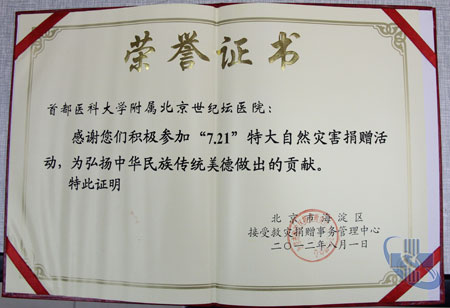 荣誉证书
首都医科大学附属北京世纪坛医院：
感谢您们积极参加“7.21”特大自然灾害捐赠活
动，为弘扬中华民族传统美德做出的贡献。
特此证明
北京市海淀区
接受救灾捐赠事务管理中心
二〇一二年八月一日